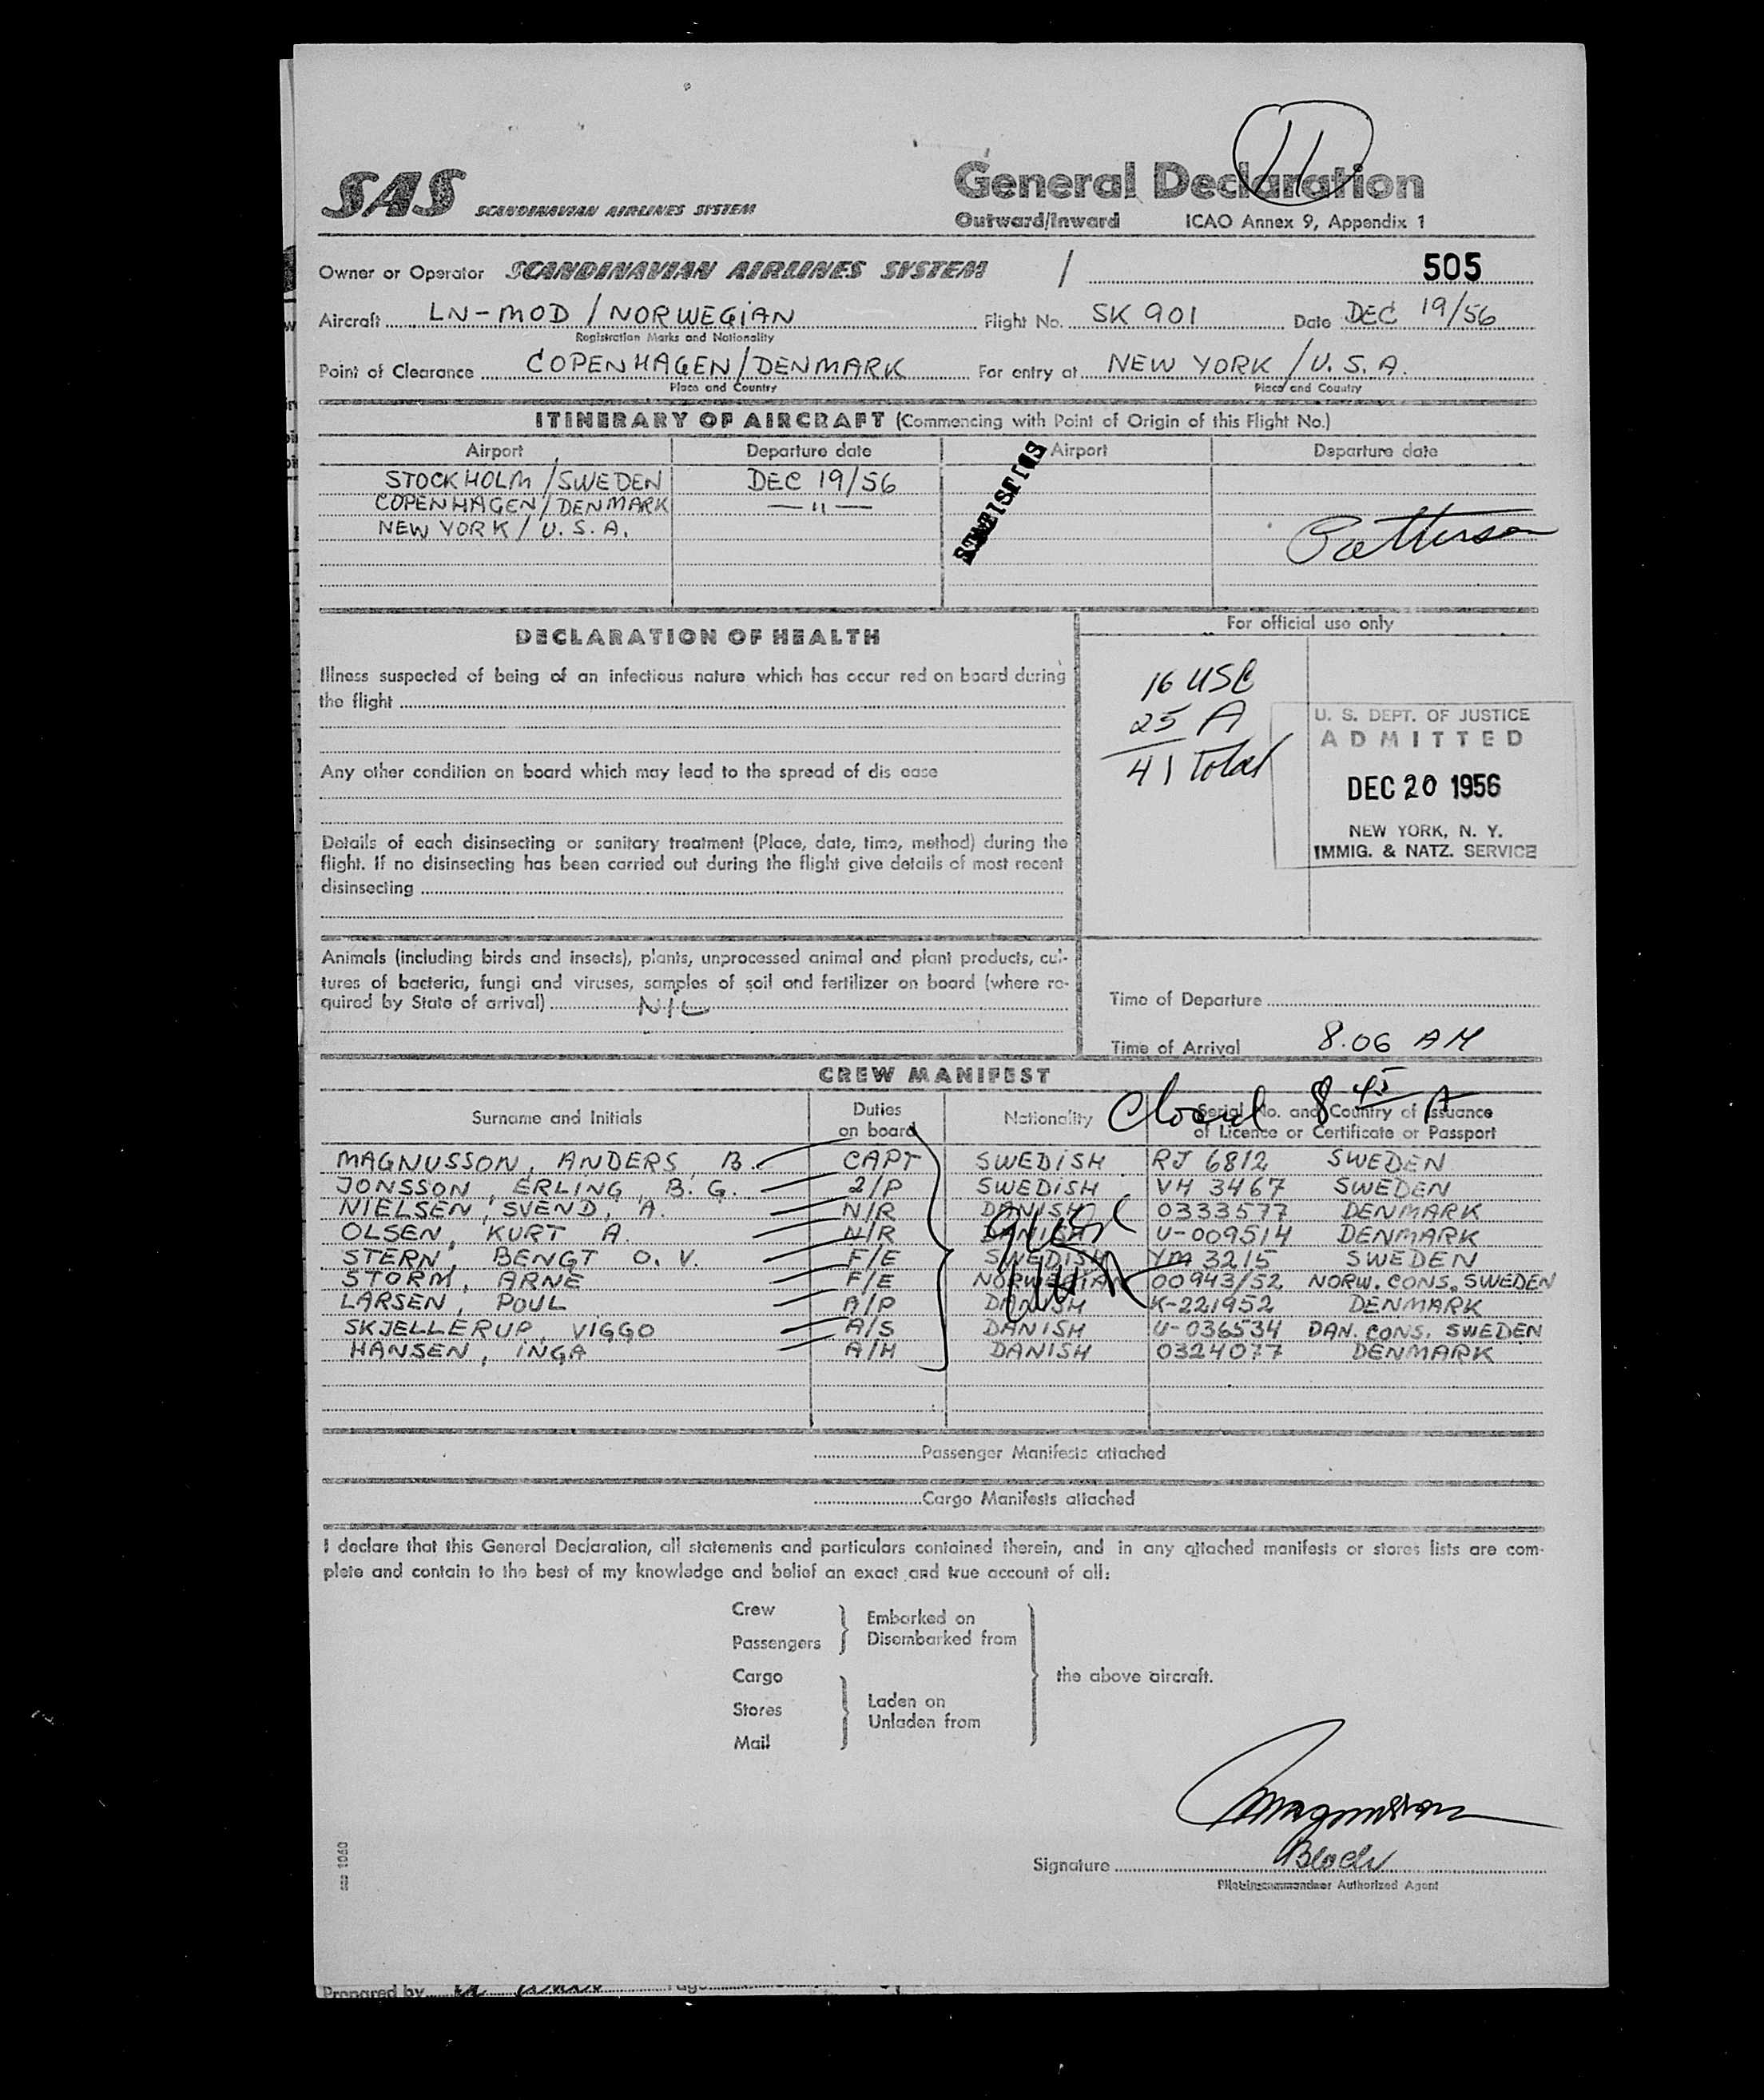 11
SAS SCANDINAVIAN AIRLINES SYSTEM
General Declaration
Outward/Inward ICAO Annex 9, Appendix 1
Owner or Operator SCANDINAVIAN AIRLINES SYSTEM / 505
Aircraft LN-MOD / NORWEGIAN Flight No. SK 901 Date DEC 19/56
Registration Marks and Nationality
Point of Clearance COPENHAGEN/DENMARK For entry at NEW YORK / U.S.A.
Place and Country Place and Country
ITINERARY OF AIRCRAFT (Commencing with Point of Origin of this Flight No.)
Airport Departure date Airport Departure date
STOCKHOLM / SWEDEN DEC 19/56
COPENHAGEN / DENMARK — " —
NEW YORK / U.S.A.
Patterson
DECLARATION OF HEALTH
For official use only
Illness suspected of being of an infectious nature which has occur red on board during
the flight
16 USC
25 A
41 Total
U. S. DEPT. OF JUSTICE
ADMITTED
DEC 20 1956
NEW YORK, N. Y.
IMMIG. & NATZ. SERVICE
Any other condition on board which may lead to the spread of dis ease
Details of each disinsecting or sanitary treatment (Place, date, time, method) during the
flight. If no disinsecting has been carried out during the flight give details of most recent
disinsecting
Animals (including birds and insects), plants, unprocessed animal and plant products, cul-
tures of bacteria, fungi and viruses, samples of soil and fertilizer on board (where re-
quired by State of arrival) NIL
Time of Departure
Time of Arrival 8.06 AM
CREW MANIFEST
Closed 8 45 A
Surname and Initials Duties on board Nationality Serial No. and Country of Issuance
of Licence or Certificate or Passport
MAGNUSSON, ANDERS B. CAPT SWEDISH RJ 6812 SWEDEN
JONSSON, ERLING, B. G. 2/P SWEDISH VH 3467 SWEDEN
NIELSEN, SVEND, A. N/R DANISH 0333577 DENMARK
OLSEN, KURT A. N/R DANISH U-009514 DENMARK
STERN, BENGT O. V. F/E SWEDISH YM 3215 SWEDEN
STORM, ARNE F/E NORWEGIAN 00943/52 NORW. CONS. SWEDEN
LARSEN, POUL A/P DANISH K-221952 DENMARK
SKJELLERUP, VIGGO A/S DANISH U-036534 DAN. CONS. SWEDEN
HANSEN, INGA A/H DANISH 0324077 DENMARK
Passenger Manifests attached
Cargo Manifests attached
I declare that this General Declaration, all statements and particulars contained therein, and in any attached manifests or stores lists are com-
plete and contain to the best of my knowledge and belief an exact and true account of all:
Crew
Passengers
Embarked on
Disembarked from
Cargo
Stores
Mail
Laden on
Unladen from
the above aircraft.
Magnusson
Signature Bloch
Authorized Agent
1060
Prepared by